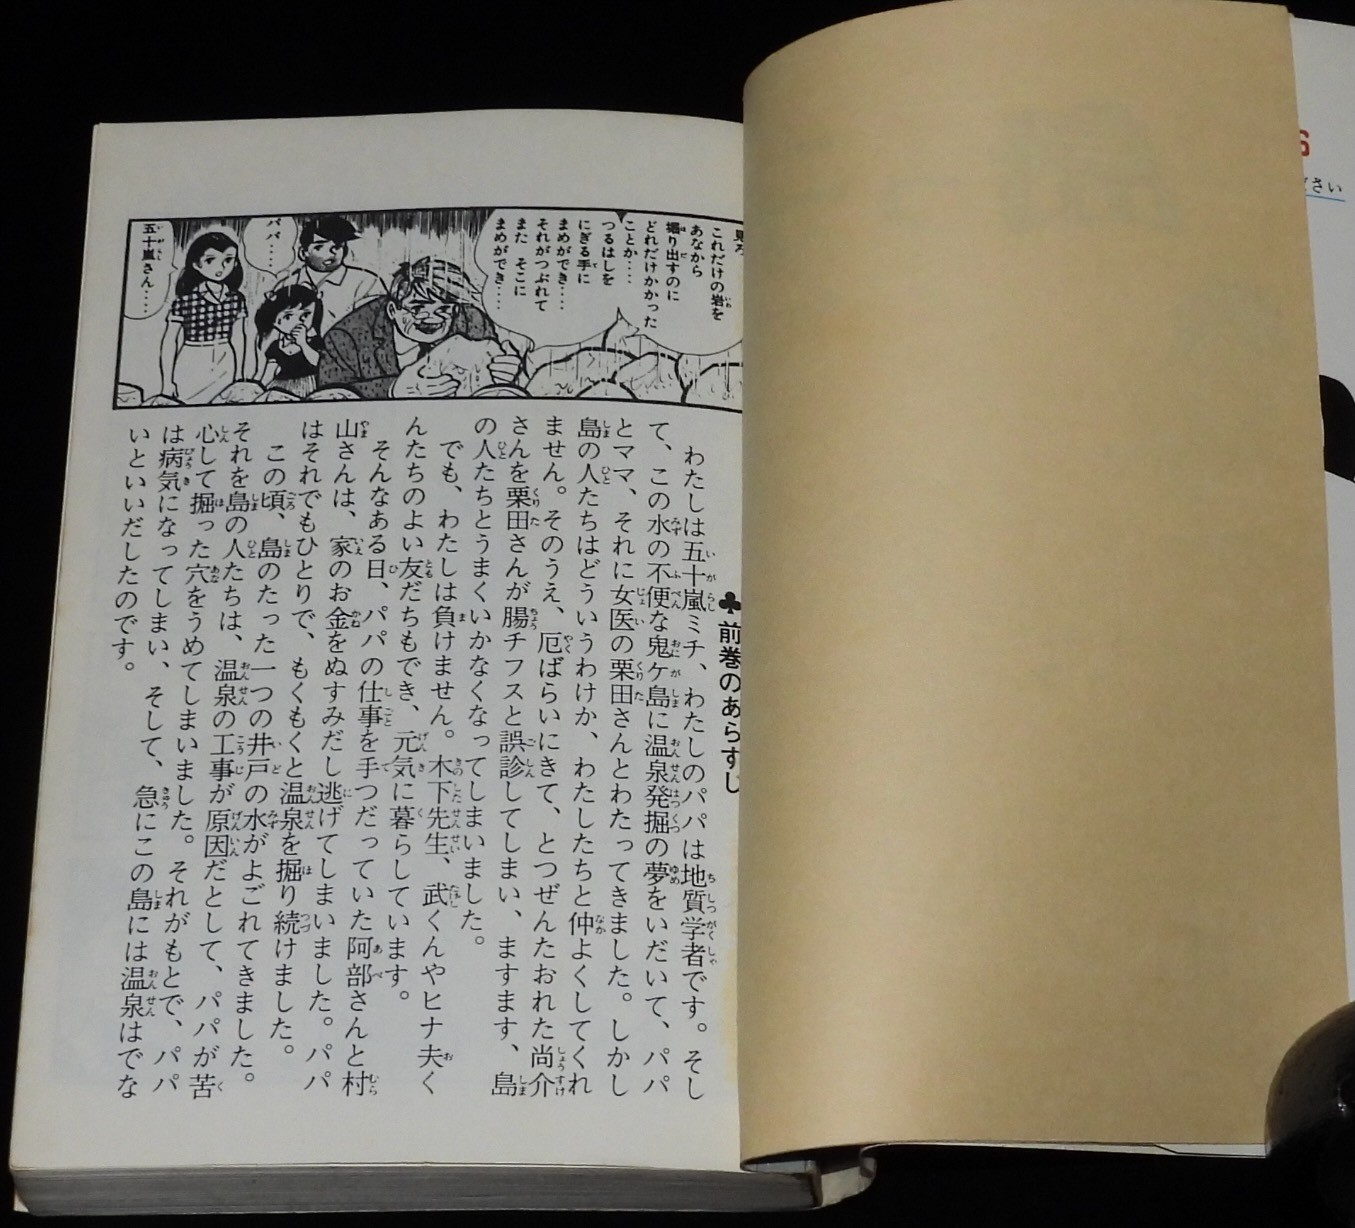 これだけの岩を
あなから
掘り出すのに
どれだけかかった
ことか‥‥
つるはしを
にぎる手に
まめができ‥‥
それがつぶれて
また そこに
まめができ‥‥
パパ‥‥
五十嵐さん‥‥
♣前巻のあらすじ
わたしは五十嵐ミチ、わたしのパパは地質学者です。そし
て、この水の不便な鬼ケ島に温泉発掘の夢をいだいて、パパ
とママ、それに女医の栗田さんとわたってきました。しかし
島の人たちはどういうわけか、わたしたちと仲よくしてくれ
ません。そのうえ、厄ばらいにきて、とつぜんたおれた尚介
さんを栗田さんが腸チフスと誤診してしまい、ますます、島
の人たちとうまくいかなくなってしまいました。
でも、わたしは負けません。木下先生、武くんやヒナ夫く
んたちのよい友だちもでき、元気に暮らしています。
そんなある日、パパの仕事を手つだっていた阿部さんと村
山さんは、家のお金をぬすみだし逃げてしまいました。パパ
はそれでもひとりで、もくもくと温泉を掘り続けました。
この頃、島のたった一つの井戸の水がよごれてきました。
それを島の人たちは、温泉の工事が原因だとして、パパが苦
心して掘った穴をうめてしまいました。それがもとで、パパ
は病気になってしまい、そして、急にこの島には温泉はでな
いといいだしたのです。
さい